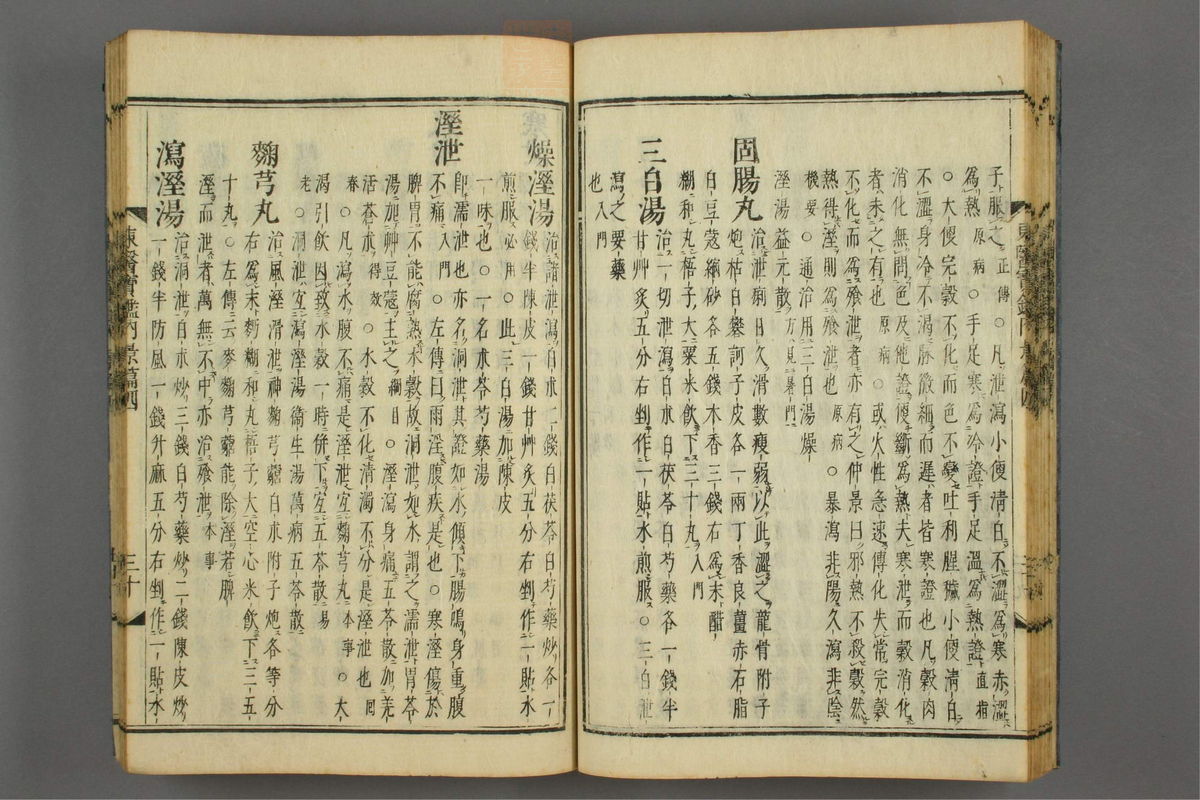 子服之正傳○凡泄瀉小便淸白不澀爲寒赤澀
爲熱原病○手足寒爲冷證手足溫爲熱證直指
○大便完穀不化而色不變吐利腥穢小便淸白
不澀身冷不渴脉微細而遲者皆寒證也凡穀肉
消化無問色及他證便斷爲熱夫寒泄而穀消化
者未之有也原病○或火性急速傳化失常完穀
不化而爲飱泄者亦有之仲景曰邪熱不殺穀然
熱得溼則爲飱泄也原病○暴瀉非陽久瀉非陰
機要○通治用三白湯燥
溼湯益元散方見暑門
固腸丸 治泄痢日久滑數瘦弱以此澀之龍骨附子
炮枯白礬訶子皮各一兩丁香良薑赤石脂
白豆蔻縮砂各五錢木香三錢右爲末醋
糊和丸梧子大粟米飮下三十丸入門
三白湯 治一切泄瀉白朮白茯苓白芍藥各一錢半
甘艸炙五分右剉作一貼水煎服○三白泄
瀉之要藥
也入門
燥溼湯 治諸泄瀉白朮二錢白茯苓白芍藥炒各一
錢半陳皮一錢甘艸炙五分右剉作一貼水
煎服必用○此三白湯加陳皮
一味也○一名朮苓芍藥湯
溼泄 卽濡泄也亦名洞泄其證如水傾下腸鳴身重腹
不痛入門○左傳曰雨淫腹疾是也○寒溼傷於
脾胃不能腐熟水穀故洞泄如水謂之濡泄胃苓
湯加艸豆蔻主之綱目○溼瀉身痛五苓散加羌
活蒼朮得效○水穀不化淸濁不分是溼泄也回
春○凡瀉水腹不痛是溼泄宜麴芎丸本事○大
渴引飮因致水穀一時併下宜五苓散易
老○洞泄宜瀉溼湯衛生湯萬病五苓散
麴芎丸 治風溼滑泄神麴芎藭白朮附子炮各等分
右爲末麪糊和丸梧子大空心米飮下三五
十丸○左傳云麥麴芎藭能除溼若脾
溼而泄者萬無不中亦治飱泄本事
瀉溼湯 治洞泄白朮炒三錢白芍藥炒二錢陳皮炒
一錢半防風一錢升麻五分右剉作一貼水
東醫寶鑑內景篇四
三十